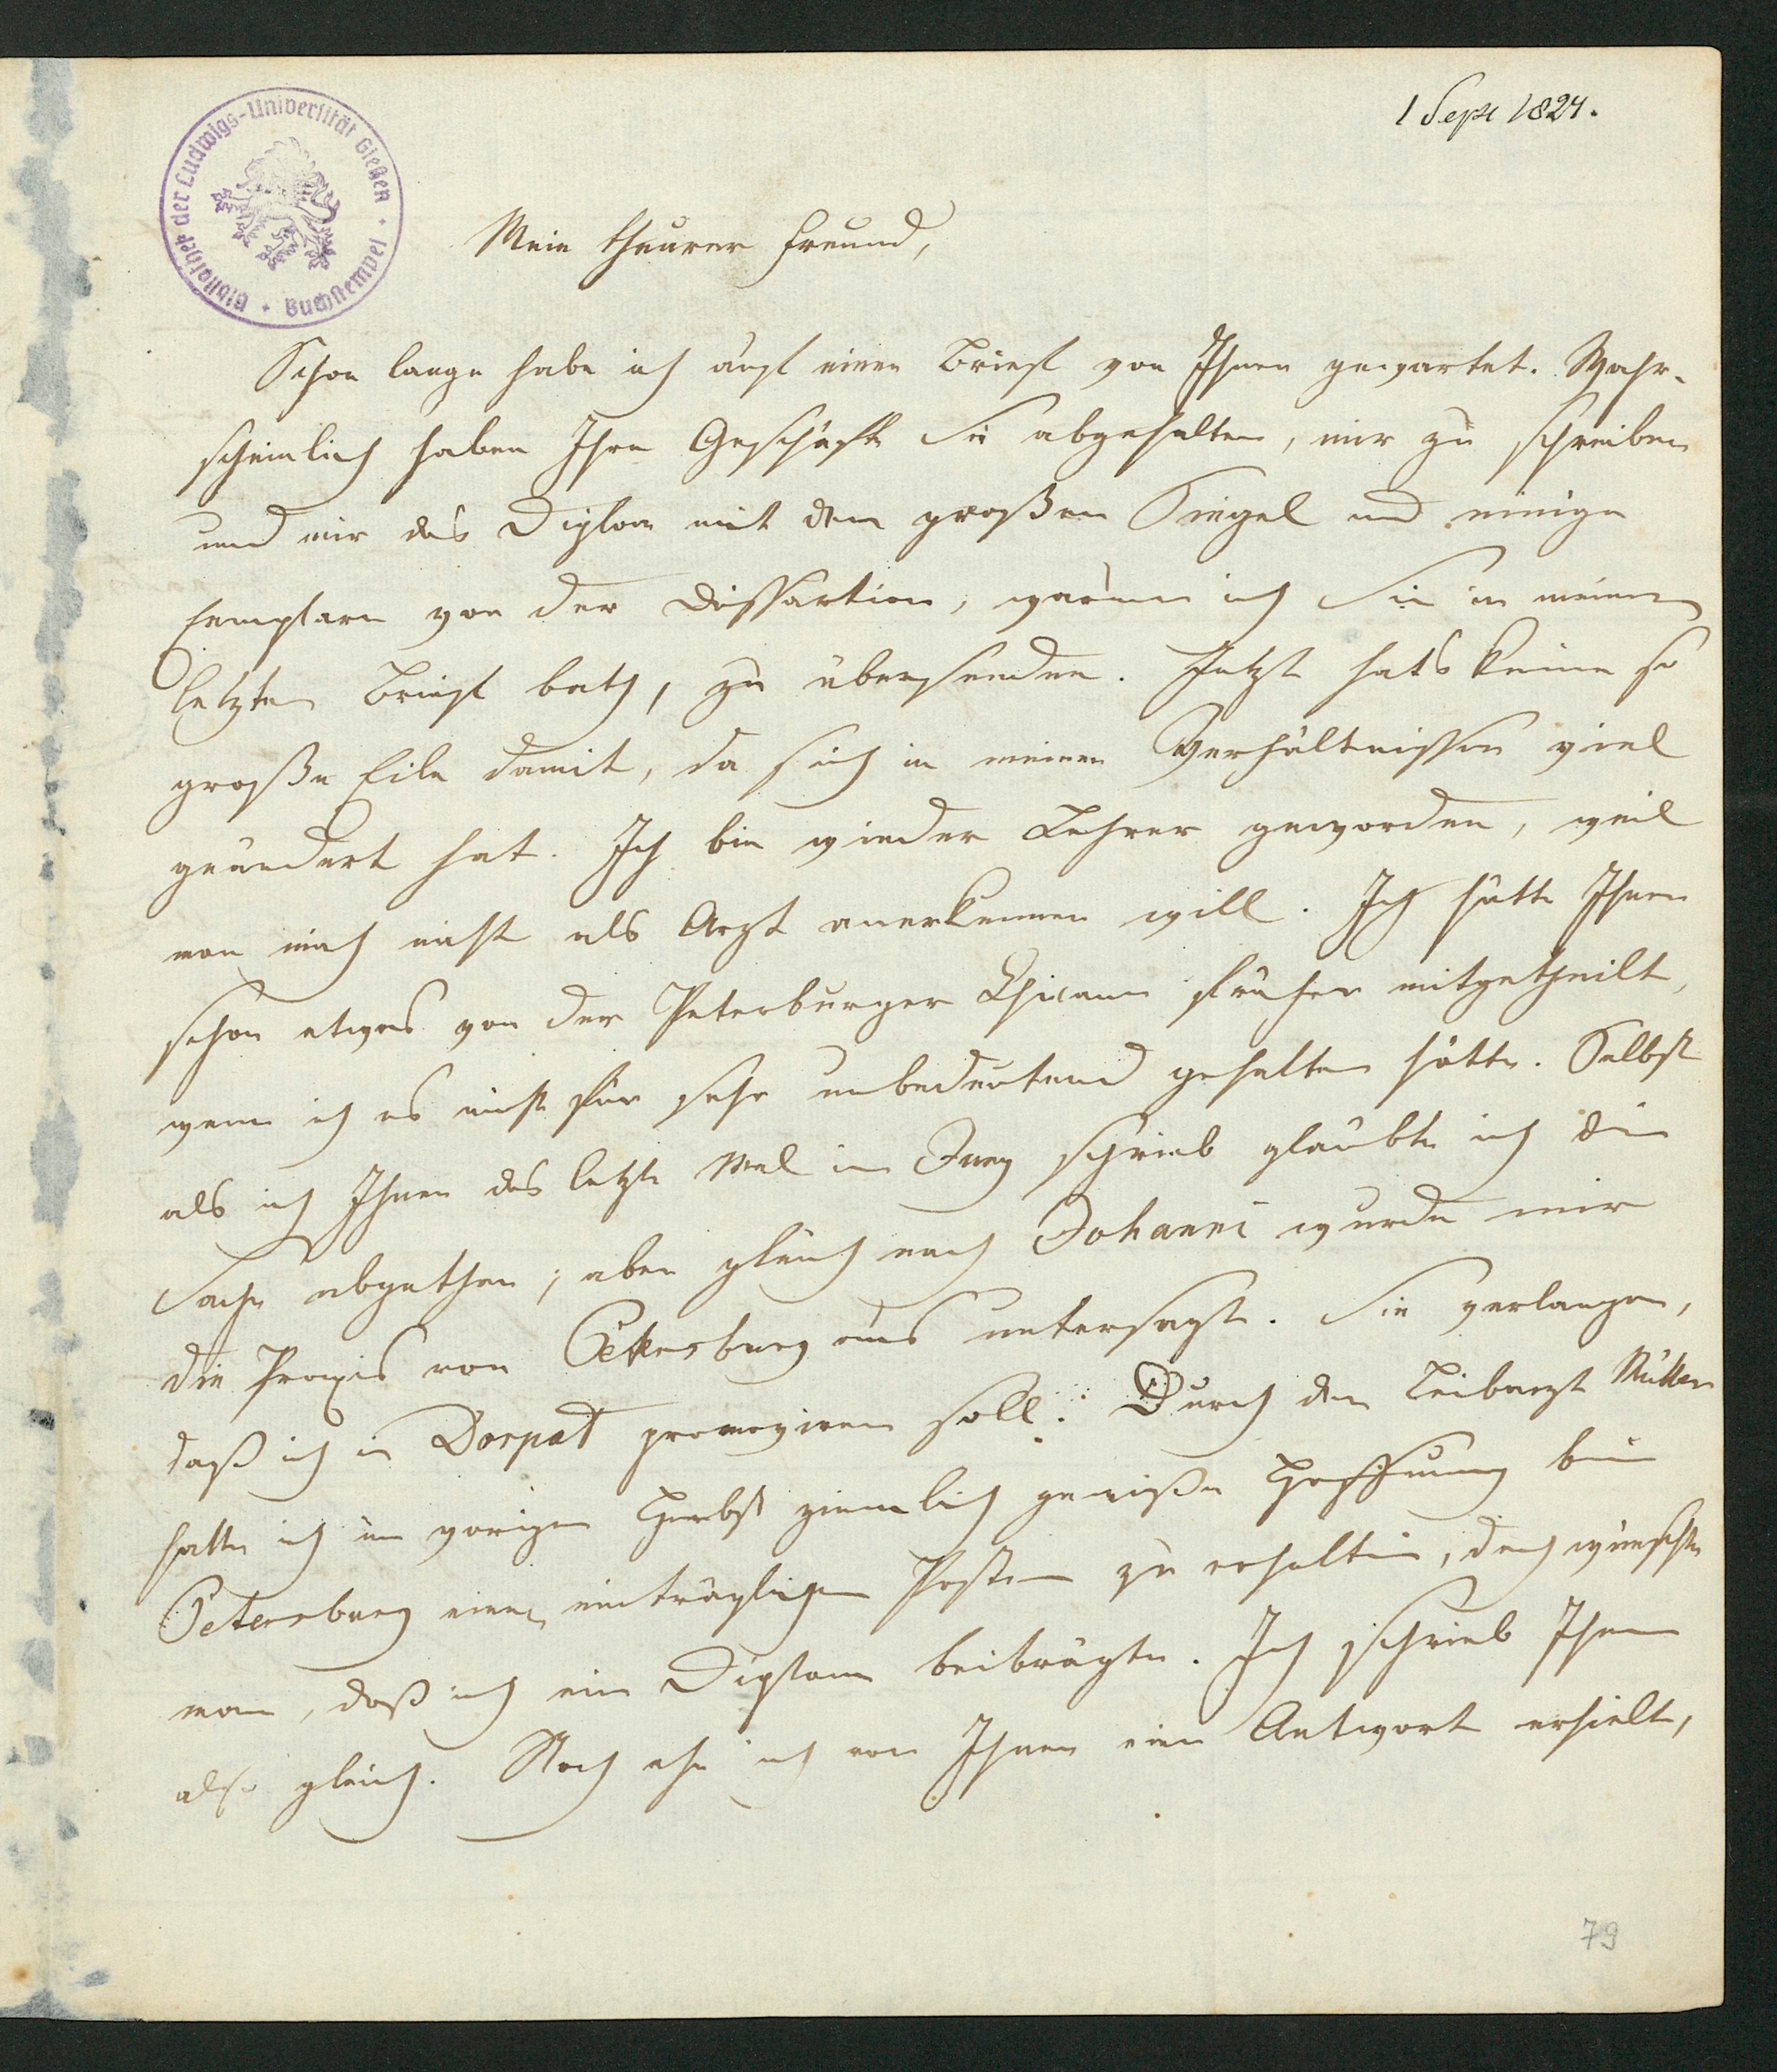 1 Sept 1824.
Bibliothek der Ludwigs-Universität Gießen + Buchstempel +
Mein theurer Freund,
Schon lange habe ich auf einen Brief von Ihnen gewartet. Wahr-
scheinlich haben Ihre Geschäfte Sie abgehalten, mir zu schreiben
und mir das Diplom mit dem großen Siegel und einige
Exemplare von der Dissertion, warum ich Sie in meinem
letzten Brief bath, zu übersenden. Jetzt hats keine so
große Eile damit, da sich in meinen Verhältnissen viel
geändert hat. Ich bin wieder Lehrer geworden, weil
man mich nicht als Arzt anerkennen will. Ich hätte Ihnen
schon etwas von der Peterburger Chicane früher mitgetheilt,
wenn ich es nicht für sehr unbedeutend gehalten hätte. Selbst
als ich Ihnen das letzte Mal im Juny schrieb glaubte ich die
Sache abgethan; aber gleich nach Johanni wurde mir
die Praxis von Petersburg aus untersagt. Sie verlangen,
daß ich in Dorpat promoviren soll. Durch den Leibarzt
hatte ich im vorigen Herbst ziemlich gewiße Hoffnung bei
Petersburg einen einträglichen Posten zu erhalten, doch wünschte
man, daß ich ein Diplom beibrächte. Ich schrieb Ihnen
also gleich. Noch ehe ich von Ihnen eine Antwort erhielt,
79